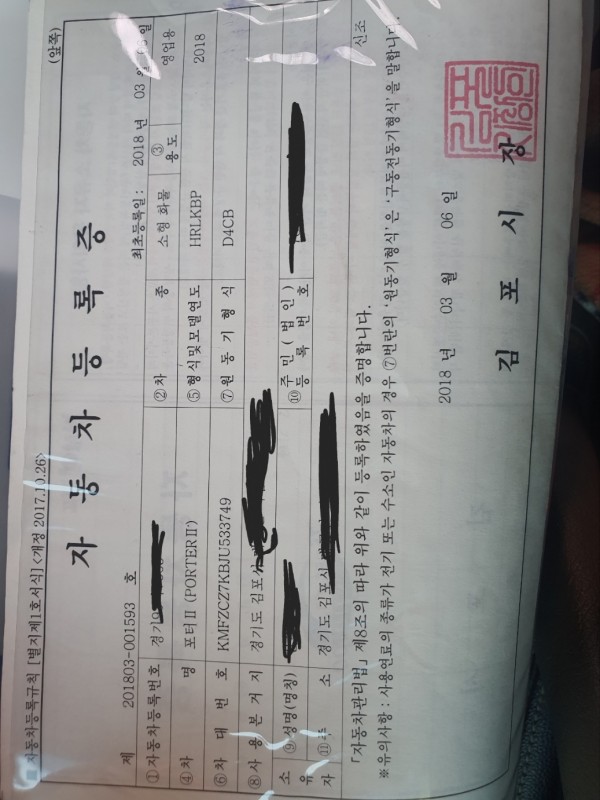 자동차등록규칙 [별지제1호서식] <개정 2017.10.26> (앞쪽)
자 동 차 등 록 증
제 201803-001593 호 최초등록일 : 2018 년 03 월 일
① 자동차등록번호 경기 ② 차 종 소형 화물 ③ 용도 영업용
④ 차 명 포터Ⅱ (PORTERⅡ) ⑤ 형식및모델연도 HRLKBP 2018
⑥ 차 대 번 호 KMFZCZ7KBJU533749 ⑦ 원 동 기 형 식 D4CB
⑧ 사 용 본 거 지 경기도 김포시
소 유 자 ⑨ 성명(명칭) ⑩ 주 민 ( 법 인 ) 등 록 번 호
⑪ 주 소 경기도 김포시
「자동차관리법」 제8조의 따라 위와 같이 등록하였음을 증명합니다. 신조
※유의사항 : 사용연료의 종류가 전기 또는 수소인 자동차의 경우 ⑦번란의 '원동기형식'은 '구동전동기형식'을 말합니다.
2018 년 03 월 06 일
김 포 시 장